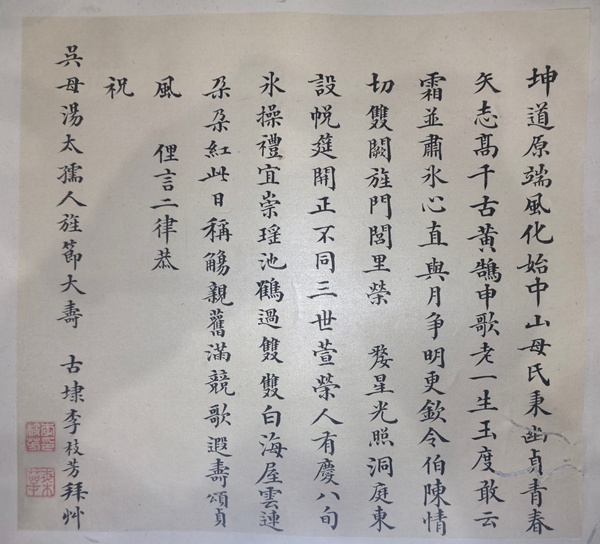 坤道原端風化始中山母氏秉幽貞青春
矢志高千古黃鵠申歌老一生玉度敢云
霜並肅氷心直與月争明更欽令伯陳情
切雙闕旌門閭里榮　婺星光照洞庭東
設帨筵開正不同三世萱榮人有慶八旬
氷操禮宜崇瑶池鶴過雙雙白海屋雲連
朵朵紅此日稱觴親舊滿競歌遐壽頌貞
風　俚言二律恭
祝
吳母湯太孺人旌節大壽　古埭李枝芳拜艸